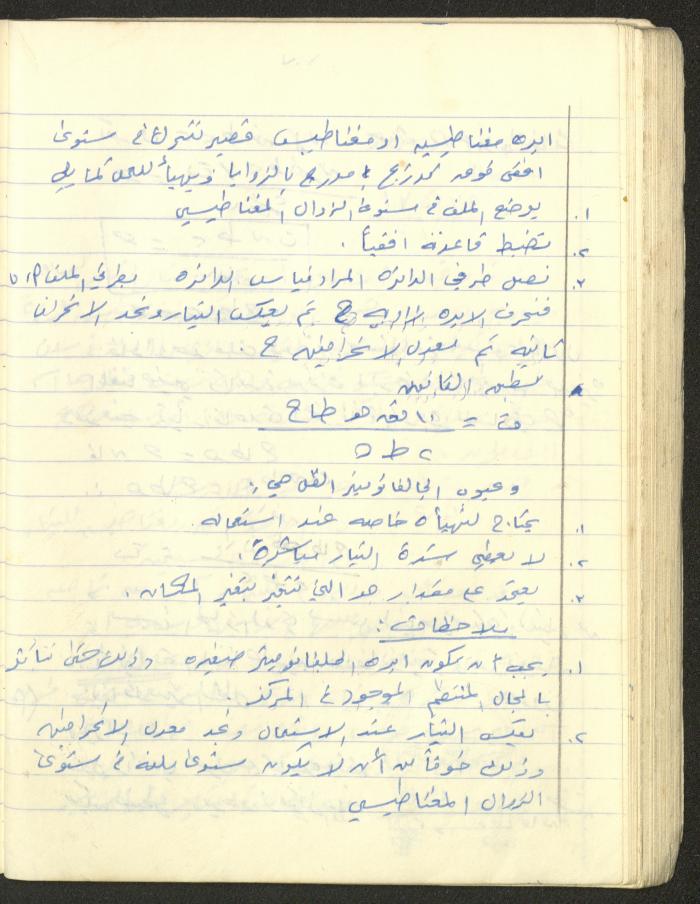 ابره مغناطيسيه او مغناطيس قصير تتحرك في مستوى
افقي فوقه مدرج بالزوايا ويهيأ للعمل كما يلي
١. يوضع الملف في مستوى الزوال المغناطيسي
٢. تضبط قاعدته افقياً .
٣. نصل طرفي الدائره المراد قياس الدائره بطرفي الملف
فتنحرف الابره بزاويه ح ثم يعكس التيار ونجد الانحراف
ثانيه ثم معدل الانحرافين ح
نطبق القانون
ت = ١٠ نق هو ظا ح
٢ ط ن
وعيوب الجالفانوميتر الظل هي :
١. يحتاج لتهيأه خاصه عند استعماله
٢. لا يعطي شدة التيار مباشرة .
٣. يعتمد على مقدار هو التي تتغير بتغير المكان .
ملاحظات :
١. يجب ان يكون ابرة الجلفانوميتر صغيره وذلك حتى تتأثر
بالمجال المنتظم الموجود في المركز .
٢. يعكس التيار عند الاستعمال ونجد معدل الانحرافين
وذلك خوفاً من أن لا يكون مستوى ملفه في مستوى
الزوال المغناطيسي